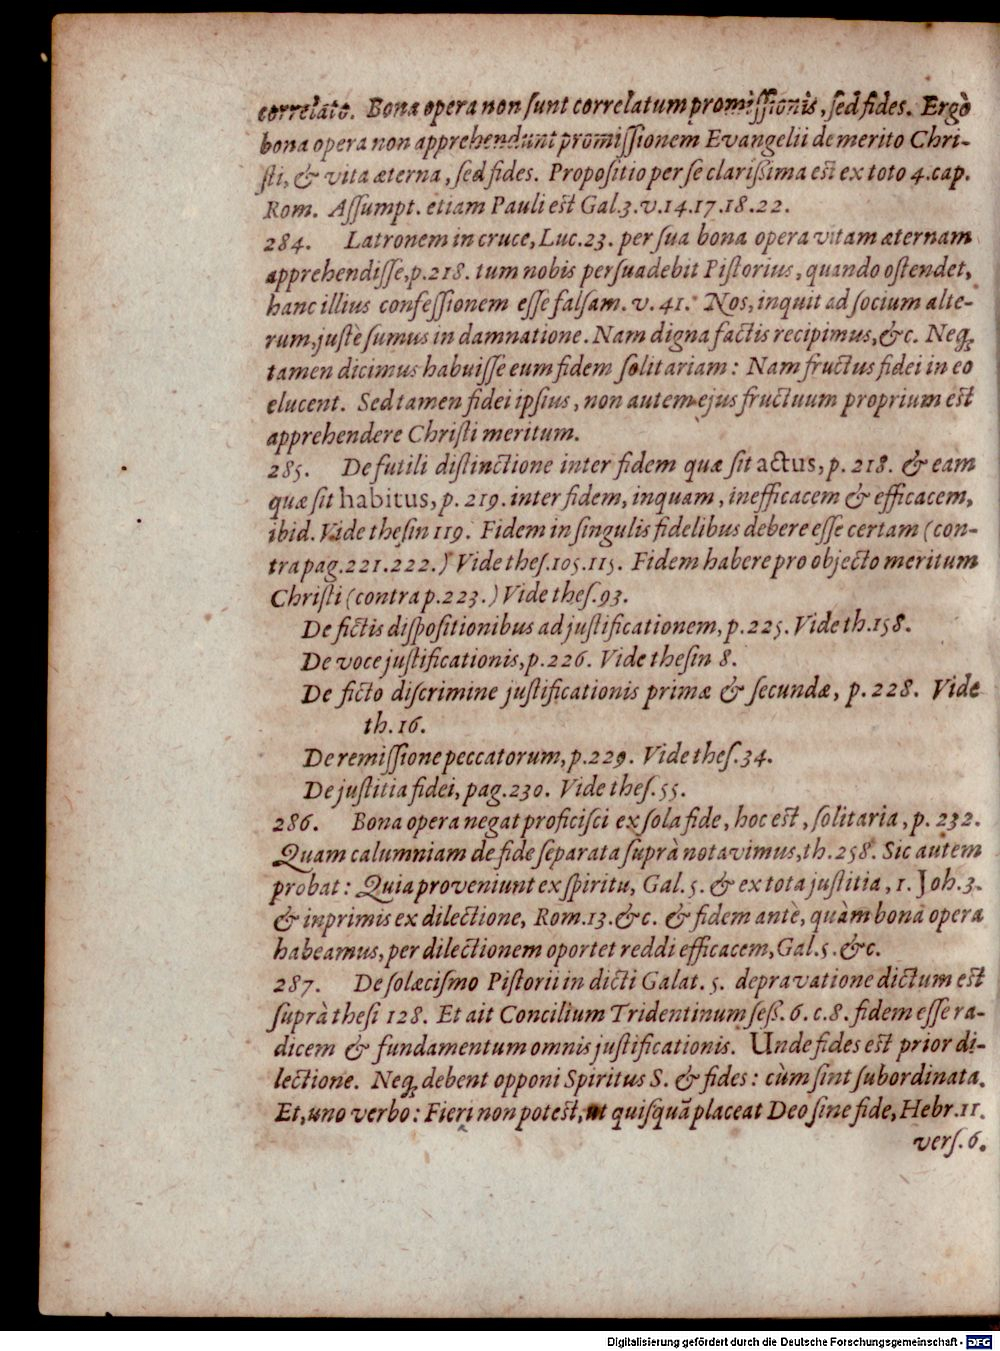 correlato. Bona opera non sunt correlatum promissionis, sed fides. Ergò
bona opera non apprehendunt promissionem Evangelii de merito Chri-
sti, & vita æterna, sed fides. Propositio per se clarißima est ex toto 4. cap.
Rom. Assumpt. etiam Pauli est Gal. 3. v. 14. 17. 18. 22.
284. Latronem in cruce, Luc. 23. per sua bona opera vitam æternam
apprehendisse, p. 218. tum nobis persuadebit Pistorius, quando ostendet,
hanc illius confessionem esse falsam. v. 41. Nos, inquit ad socium alte-
rum, justè sumus in damnatione. Nam digna factis recipimus, &c. Neq;
tamen dicimus habuisse eum fidem solitariam: Nam fructus fidei in eo
elucent. Sed tamen fidei ipsius, non autem ejus fructuum proprium est
apprehendere Christi meritum.
285. De futili distinctione inter fidem quæ sit actus, p. 218. & eam
quæ sit habitus, p. 219. inter fidem, inquam, inefficacem & efficacem,
ibid. Vide thesin 119. Fidem in singulis fidelibus debere esse certam (con-
tra pag. 221. 222.) Vide thes. 105. 115. Fidem habere pro objecto meritum
Christi (contra p. 223.) Vide thes. 93.
De fictis dispositionibus ad justificationem, p. 225. Vide th. 158.
De voce justificationis, p. 226. Vide thesin 8.
De ficto discrimine justificationis primæ & secundæ, p. 228. Vide
th. 16.
De remissione peccatorum, p. 229. Vide thes. 34.
De justitia fidei, pag. 230. Vide thes. 55.
286. Bona opera negat proficisci ex sola fide, hoc est, solitaria, p. 232.
Quam calumniam de fide separata suprà notavimus, th. 258. Sic autem
probat: Quia proveniunt ex spiritu, Gal. 5. & ex tota justitia, 1. Joh. 3.
& inprimis ex dilectione, Rom. 13. &c. & fidem antè, quàm bona opera
habeamus, per dilectionem oportet reddi efficacem, Gal. 5. &c.
287. De solæcismo Pistorii in dicti Galat. 5. depravatione dictum est
suprà thesi 128. Et ait Concilium Tridentinum seß. 6. c. 8. fidem esse ra-
dicem & fundamentum omnis justificationis. Unde fides est prior di-
lectione. Neq; debent opponi Spiritus S. & fides: cùm sint subordinata.
Et, uno verbo: Fieri non potest, ut quisquã placeat Deo sine fide, Hebr. 11.
vers. 6.
Digitalisierung gefördert durch die Deutsche Forschungsgemeinschaft - DFG